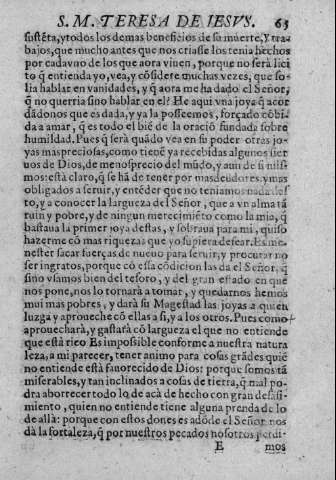 S. M. TERESA DE IESVS. 65
sustẽta, y todos los demas beneficios de su muerte, y tra-
bajos, que mucho antes que nos criasse los tenia hechos
por cada vno de los que aora viuen, porque no serà lici
to q̃ entienda yo, vea, y cõsidere muchas vezes, que so-
lia hablar en vanidades, y q̃ aora me ha dado el Señor,
q̃ no querria sino hablar en el? He aqui vna joya q̃ acor
dãdonos que es dada, y ya la posseemos, forçado cõbi-
da a amar, q̃ es todo el biẽ de la oraciõ fundada sobre
humildad. Pues q̃ serà quãdo vea en su poder otras jo-
yas mas preciosas, como tienẽ ya recebidas algunos sier
uos de Dios, de menosprecio del mũdo, y aun de si mis-
mos: està claro, q̃ se hã de tener por mas deudores, y mas
obligados a seruir, y entẽder que no teniamos nada des
to, y a conocer la largueza del Señor, que a vn alma tã
ruin y pobre, y de ningun merecimiẽto como la mia, q̃
bastaua la primer joya destas, y sobraua para mi, quiso
hazerme cõ mas riquezas que yo supiera desear. Es me-
nester sacar fuerças de nueuo para seruir, y procurar no
ser ingratos, porque cõ essa cõdicion las da el Señor, q̃
sino vsamos bien del tesoro, y del gran estado en que
nos pone, nos lo tornarà a tomar, y quedarnos hemos
mui mas pobres, y darà su Magestad las joyas a quien
luzga y aproueche cõ ellas a si, y a los otros. Pues como
aprouecharà, y gastarà cõ largueza el que no entiende
que està rico Es impossible conforme a nuestra natura
leza, a mi parecer, tener animo para cosas grãdes quiẽ
no entiende està fauorecido de Dios: porque somos tã
miserables, y tan inclinados a cosas de tierra, q̃ mal po-
dra aborrecer todo lo de acà de hecho con gran desasi-
miento, quien no entiende tiene alguna prenda de lo
de allà: porque con estos dones es adõde el Señor nos
dà la fortaleza, q̃ por nuestros pecados nosotros perdi-
E mos